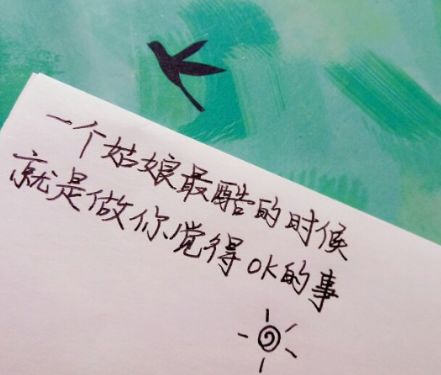 一个姑娘最酷的时候
就是做你觉得ok的事